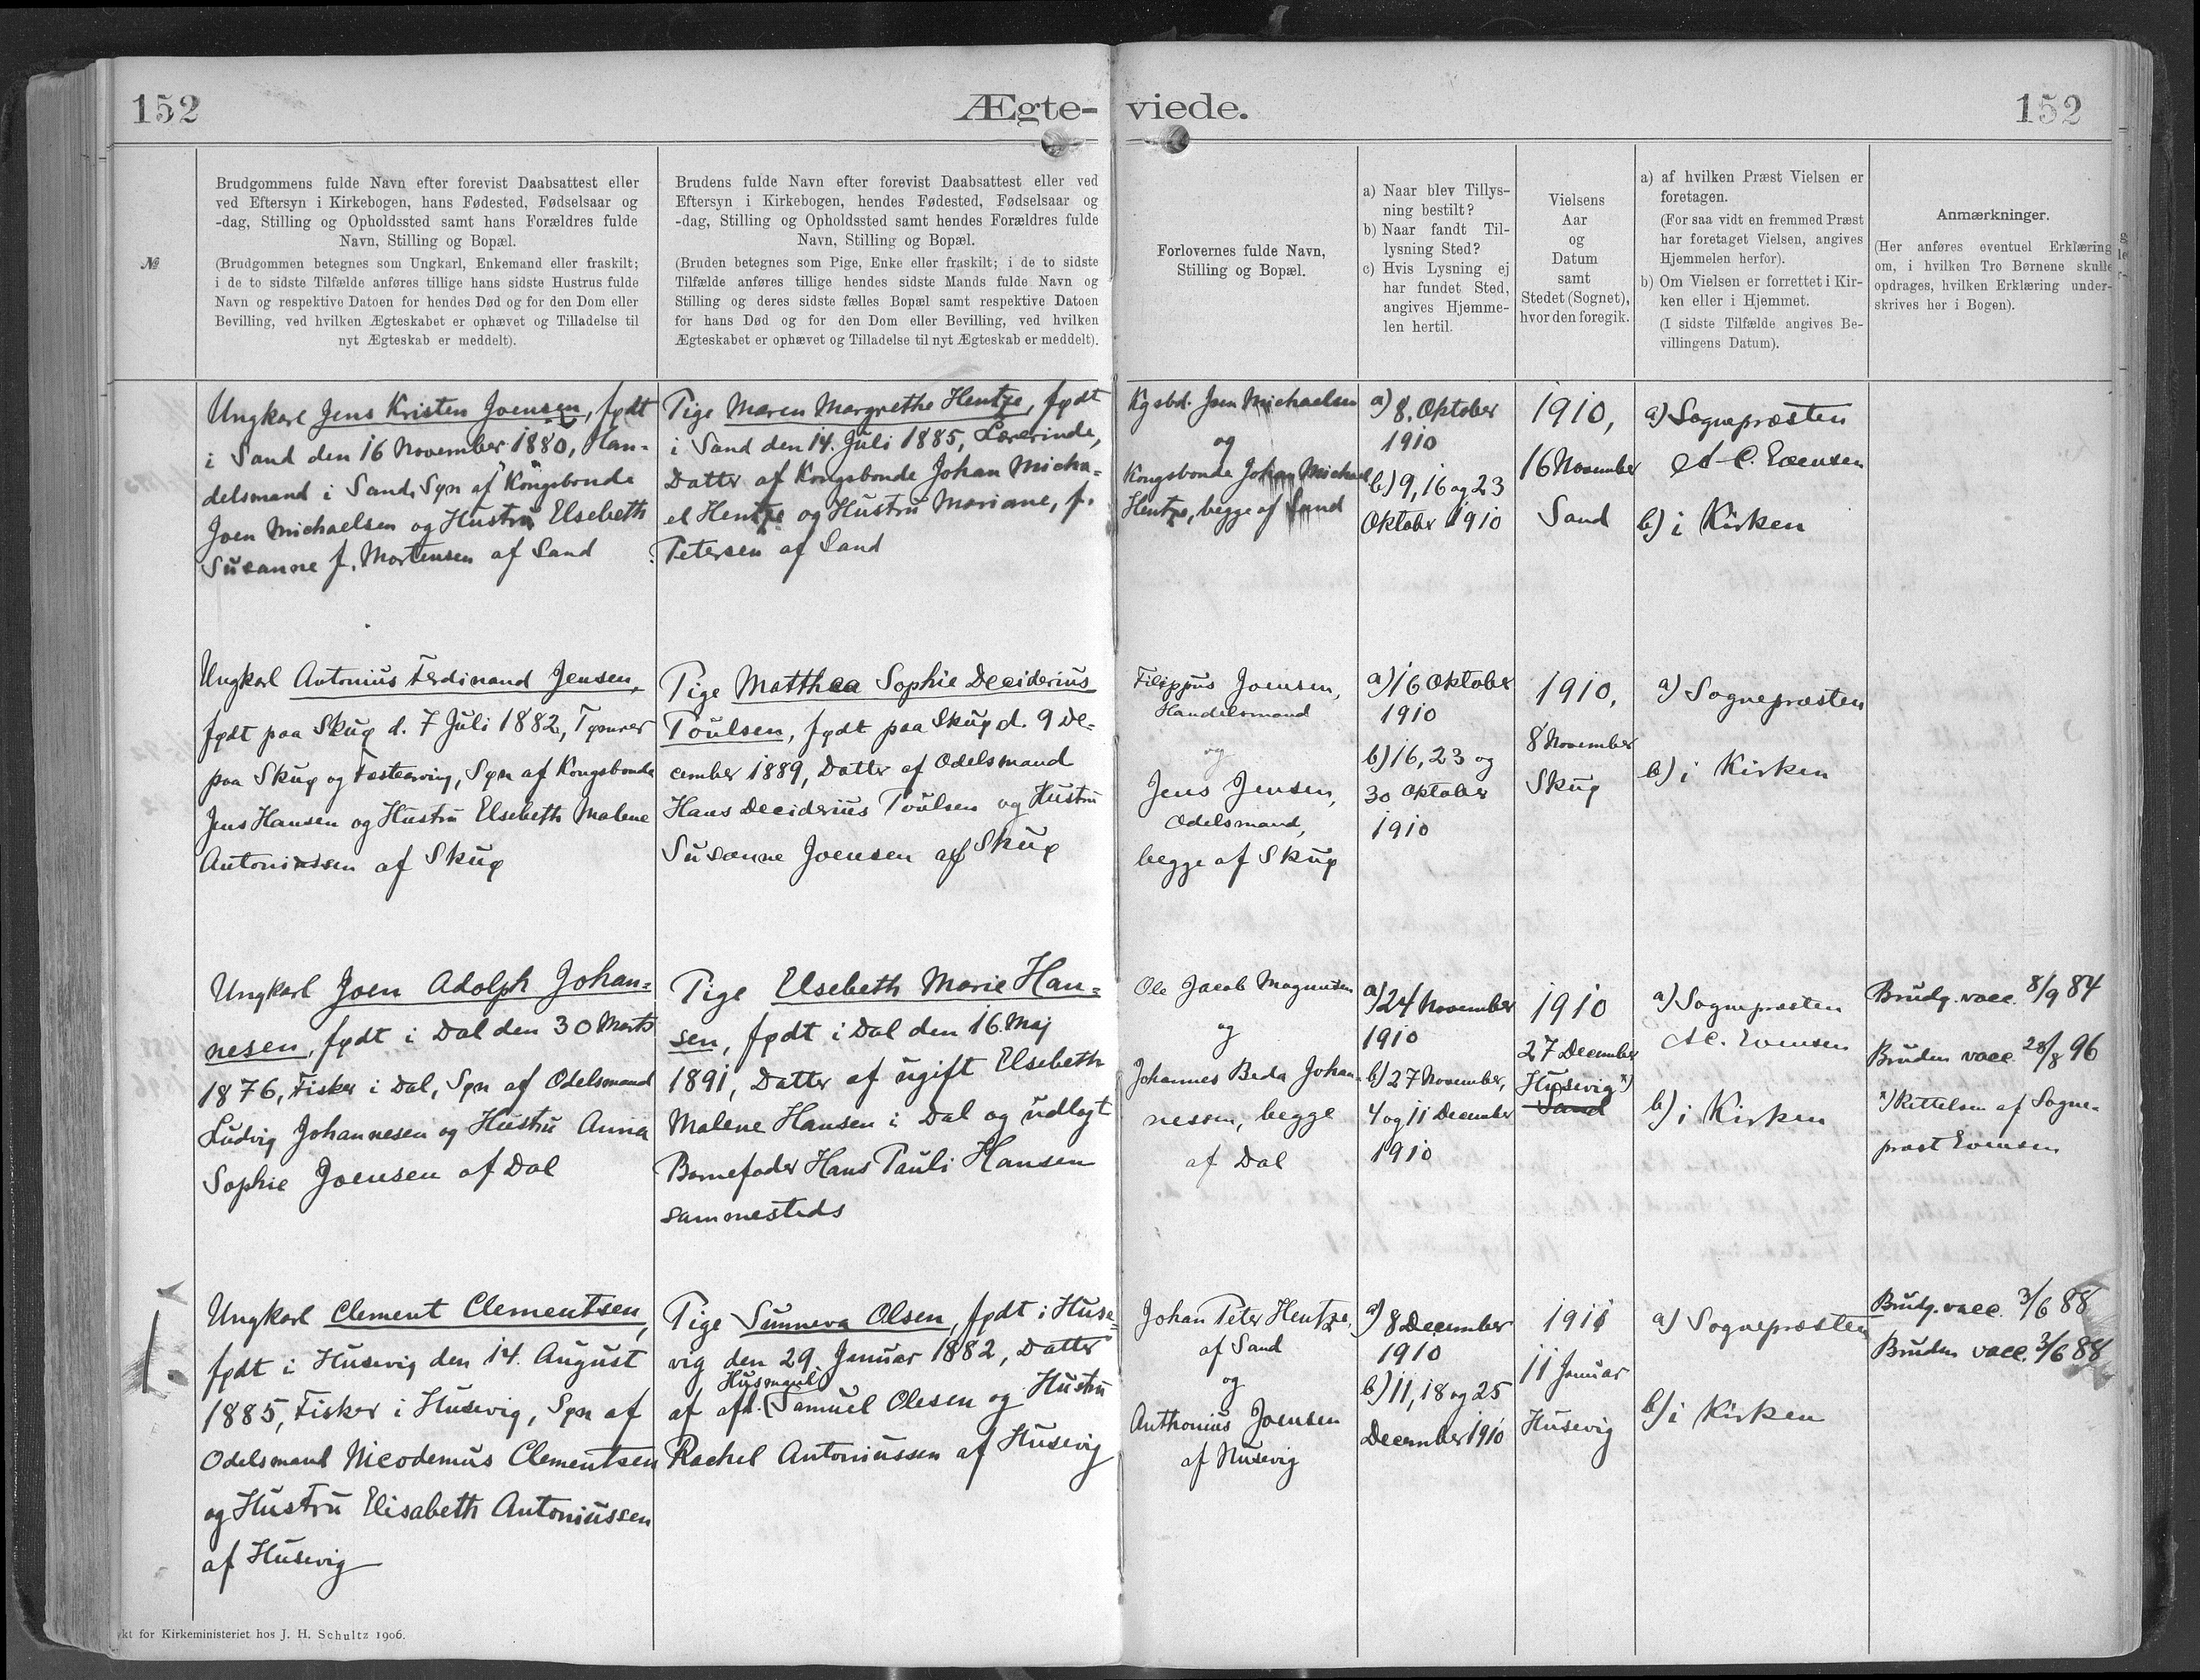 152
Ægte-
viede.
152
№
Brudgommens fulde Navn efter forevist Daabsattest eller
ved Eftersyn i Kirkebogen, hans Fødested, Fødselsaar og
-dag, Stilling og Opholdssted samt hans Forældres fulde
Navn, Stilling og Bopæl.
(Brudgommen betegnes som Ungkarl, Enkemand eller fraskilt;
i de to sidste Tilfælde anføres tillige hans sidste Hustrus fulde
Navn og respektive Datoen for hendes Død og for den Dom eller
Bevilling, ved hvilken Ægteskabet er ophævet og Tilladelse til
nyt Ægteskab er meddelt).
Brudens fulde Navn efter forevist Daabsattest eller ved
Eftersyn i Kirkebogen, hendes Fødested, Fødselsaar og
-dag, Stilling og Opholdssted samt hendes Forældres fulde
Navn, Stilling og Bopæl.
(Bruden betegnes som Pige, Enke eller fraskilt; i de to sidste
Tilfælde anføres tillige hendes sidste Mands fulde Navn og
Stilling og deres sidste fælles Bopæl samt respektive Datoen
for hans Død og for den Dom eller Bevilling, ved hvilken
Ægteskabet er ophævet og Tilladelse til nyt Ægteskab er meddelt).
Forlovernes fulde Navn,
Stilling og Bopæl.
a) Naar blev Tillys-
ning bestilt?
b) Naar fandt Til-
lysning Sted?
c) Hvis Lysning ej
har fundet Sted,
angives Hjemme-
len hertil.
Vielsens
Aar
og
Datum
samt
Stedet (Sognet),
hvor den foregik.
a) af hvilken Præst Vielsen er
foretagen.
(For saa vidt en fremmed Præst
har foretaget Vielsen, angives
Hjemmelen herfor).
b) Om Vielsen er forrettet i Kir-
ken eller i Hjemmet.
(I sidste Tilfælde angives Be-
villingens Datum).
Anmærkninger.
(Her anføres eventuel Erklæring
om, i hvilken Tro Børnene skulle
opdrages, hvilken Erklæring under-
skrives her i Bogen).
Ungkarl Jens Kristen Joensen, født
i Sand den 16 November 1880, Han-
delsmand i Sand, Søn af Kongsbonde
Joen Michaelsen og Hustru Elsebeth
Susanne f. Mortensen af Sand
Pige Maren Margrethe Hentze, født
i Sand den 14. Juli 1885, Lærerinde,
Datter af Kongsbonde Johan Micha-
el Hentze og Hustru Mariane, f.
Petersen af Sand
Kgsbd. Joen Michaelsen
og
Kongsbonde Johan Michael
Hentze, begge af Sand
a) 8. Oktober
1910
b) 9, 16 og 23
Oktober 1910
1910,
16 November
Sand
a) Sognepræsten
A. C. Evensen
b) i Kirken
Ungkarl Antonius Ferdinand Jensen,
født paa Skuø d. 7 Juli 1882, Tømrer
paa Skuø og Fæstearving, Søn af Kongsbonde
Jens Hansen og Hustru Elsebeth Malene
Antoniussen af Skuø
Pige Matthea Sophie Deciderius
Poulsen, født paa Skuø d. 9 De-
cember 1889, Datter af Odelsmand
Hans Deciderius Poulsen og Hustru
Susanne Joensen af Skuø
Filippus Joensen,
Handelsmand
og
Jens Jensen,
Odelsmand,
begge af Skuø
a) 16 Oktober
1910
b) 16, 23 og
30 Oktober
1910
1910,
8 November
Skuø
a) Sognepræsten
b) i Kirken
Ungkarl Joen Adolph Johan-
nesen, født i Dal den 30 Marts
1876, Fisker i Dal, Søn af Odelsmand
Ludvig Johannesen og Hustru Anna
Sophie Joensen af Dal
Pige Elsebeth Marie Han-
sen, født i Dal den 16. Maj
1891, Datter af ugift Elsebeth
Malene Hansen i Dal og udlagt
Barnefader Hans Pauli Hansen
sammesteds
Ole Jacob Magnussen
og
Johannes Beda Johan-
nesen, begge
af Dal
a) 24 November
1910
b) 27 November,
4 og 11 December
1910
1910
27 December
Husevig *)
Sand
a) Sognepræsten
A. C. Evensen
b) i Kirken
Brudg. vacc. 8/9 84
Bruden vacc. 28/8 96
*) Rettelsen af Sogne-
præst Evensen
1.
Ungkarl Clement Clementsen,
født i Husevig den 14. August
1885, Fisker i Husevig, Søn af
Odelsmand Nicodemus Clementsen
og Hustru Elisabeth Antoniussen
af Husevig
Pige Sunneva Olsen, født i Huse-
vig den 29. Januar 1882, Datter
Husmand
af afd. (Samuel Olesen og Hustru
Rachel Antoniussen af Husevig
Johan Peter Hentze,
af Sand
og
Anthonius Joensen
af Husevig
a) 8 December
1910
b) 11, 18 og 25
December 1910
1911
11 Januar
Husevig
a) Sognepræsten
b) i Kirken
Brudg. vacc. 3/6 88
Bruden vacc. 3/6 88
kt for Kirkeministeriet hos J. H. Schultz 1906.